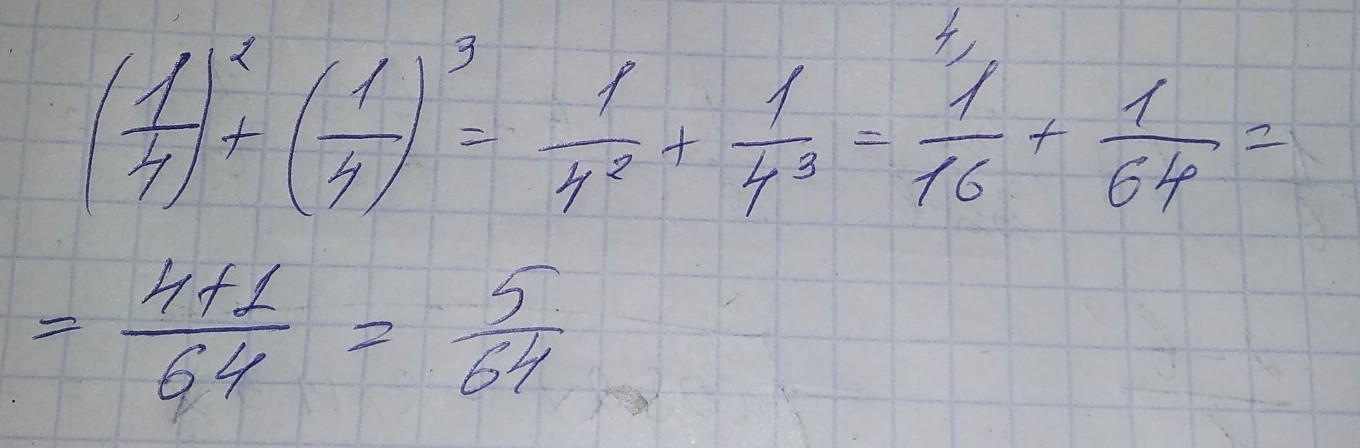 (1/4)² + (1/4)³ = 1/4² + 1/4³ = ⁴⁾1/16 + 1/64 =
= 4+1/64 = 5/64